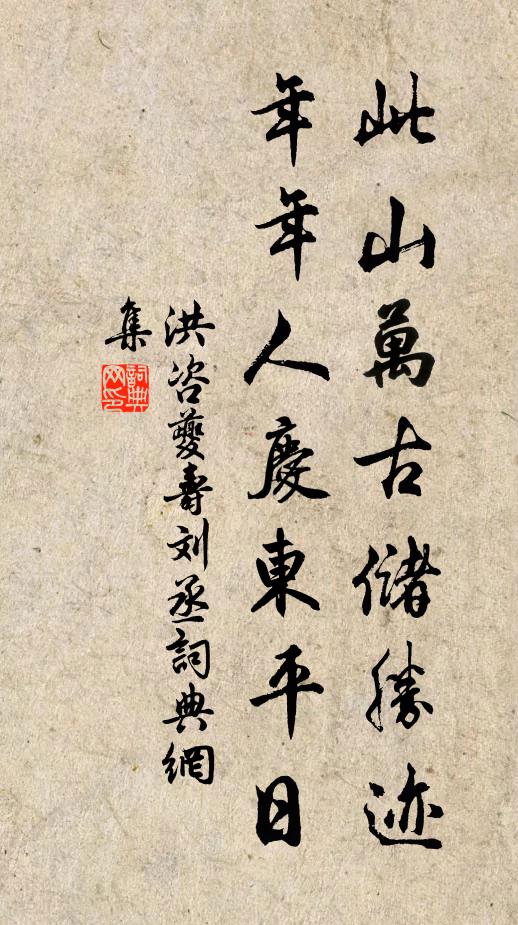 此山萬古儲勝迹
年年人慶東平日
洪咨夔壽刘丞詞典網
集
詞典
网印